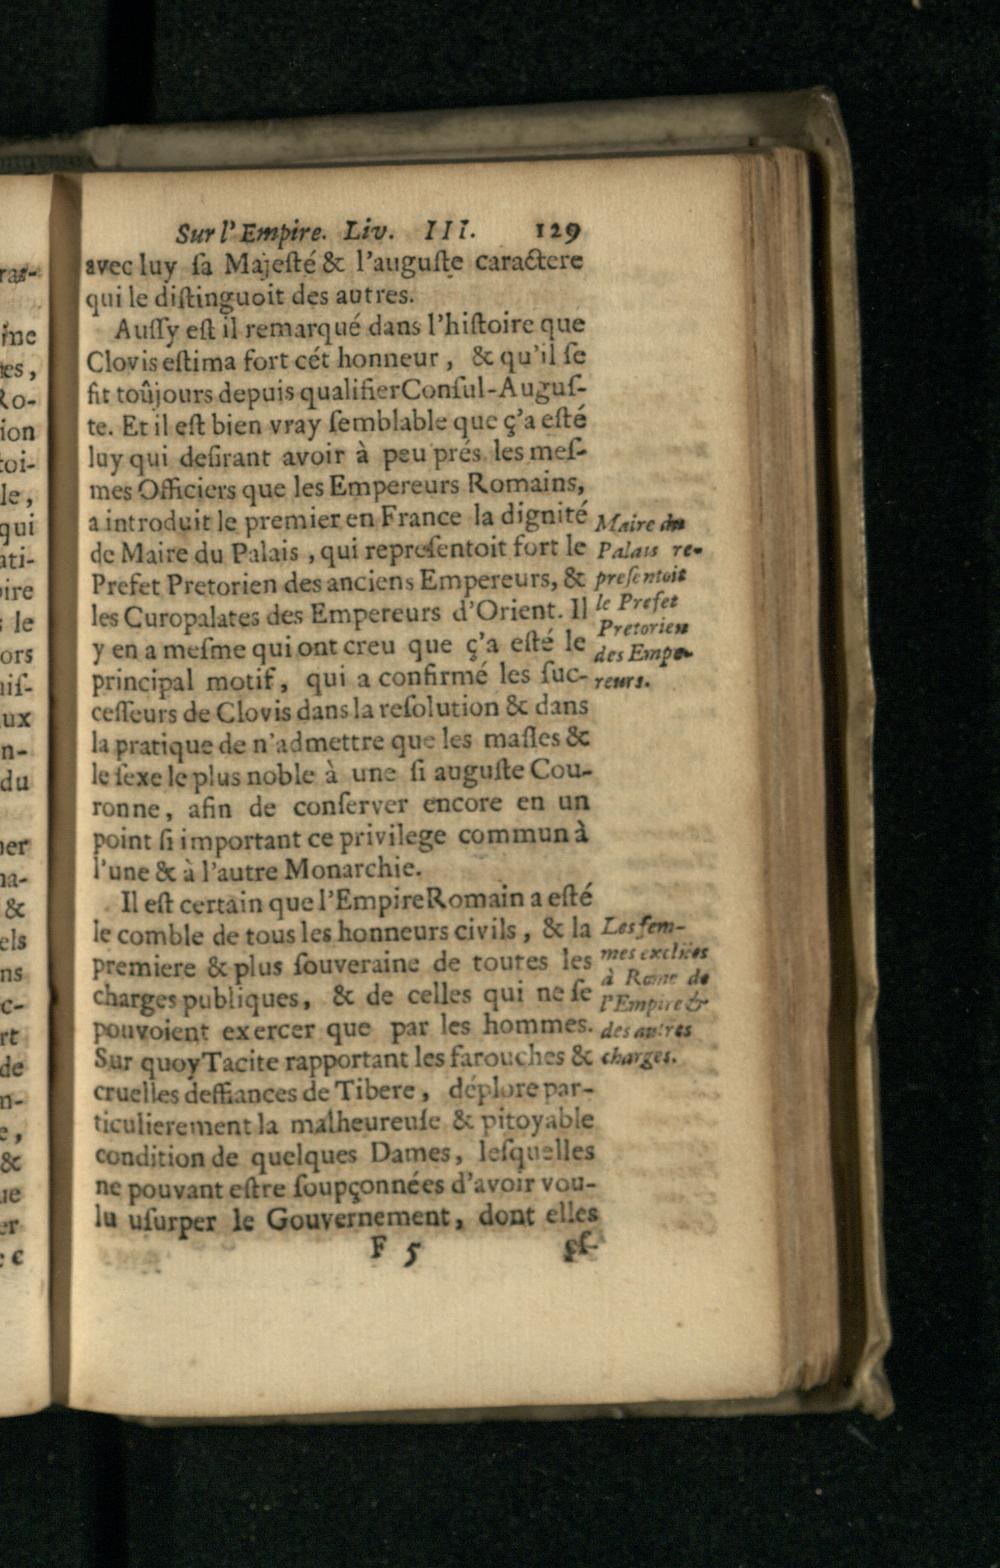 Sur l'Empire. Liv. III. 129
avec luy ſa Majeſté & l'auguſte caractere
qui le diſtinguoit des autres.
Auſſy eſt il remarqué dans l'hiſtoire que
Clovis eſtima fort cét honneur, & qu'il ſe
fit toûjours depuis qualifier Conſul-Auguſ-
te. Et il eſt bien vray ſemblable que ç'a eſté
luy qui deſirant avoir à peu prés les meſ-
mes Officiers que les Empereurs Romains,
a introduit le premier en France la dignité
de Maire du Palais, qui repreſentoit fort le
Prefet Pretorien des anciens Empereurs, &
les Curopalates des Empereurs d'Orient. Il
y en a meſme qui ont creu que ç'a eſté le
principal motif, qui a confirmé les ſuc-
ceſſeurs de Clovis dans la reſolution & dans
la pratique de n'admettre que les maſles &
le ſexe le plus noble à une ſi auguſte Cou-
ronne, afin de conſerver encore en un
point ſi important ce privilege commun à
l'une & à l'autre Monarchie.
Il eſt certain que l'Empire Romain a eſté
le comble de tous les honneurs civils, & la
premiere & plus ſouveraine de toutes les
charges publiques, & de celles qui ne ſe
pouvoient exercer que par les hommes.
Sur quoy Tacite rapportant les farouches &
cruelles deffiances de Tibere, déplore par-
ticulierement la malheureuſe & pitoyable
condition de quelques Dames, leſquelles
ne pouvant eſtre ſoupçonnées d'avoir vou-
lu uſurper le Gouvernement, dont elles
F 5 eſ-
Maire du
Palais re-
preſentoit
le Prefet
Pretorien
des Empe-
reurs.
Les fem-
mes excluës
à Rome de
l'Empire &
des autres
charges.